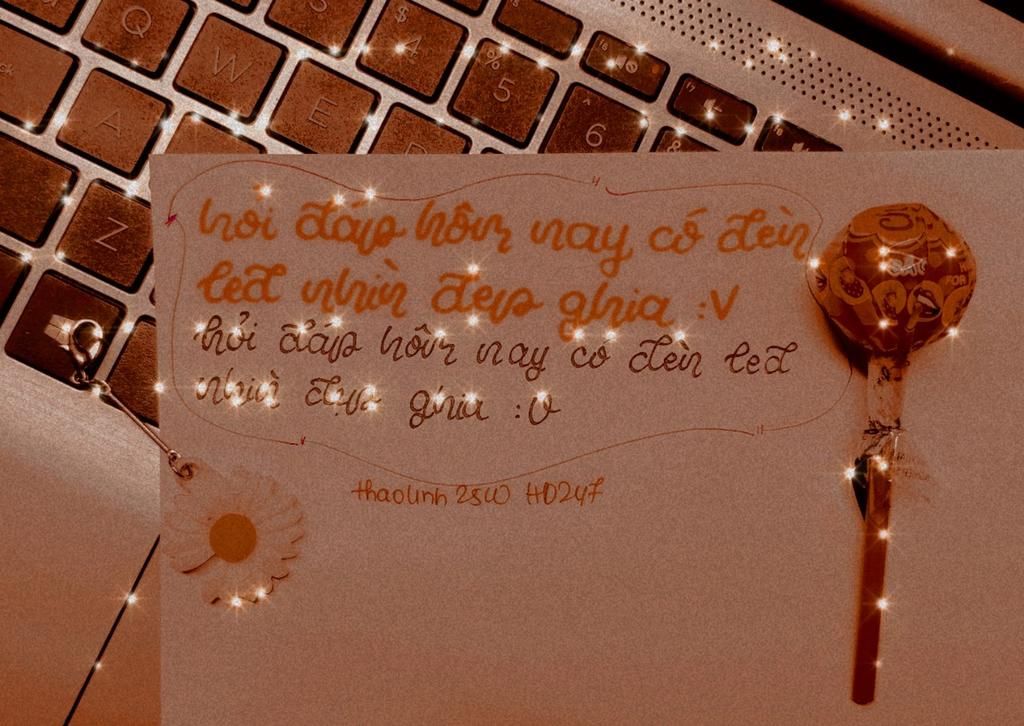 Q
W
$
4
%
5
^
6
A
E
Z
hỏi đáp hôm nay có đèn
led nhìn đẹp ghia :V
hỏi đáp hôm nay có đèn led
nhìn đẹp ghia :v
thaolinh 2SW HD247